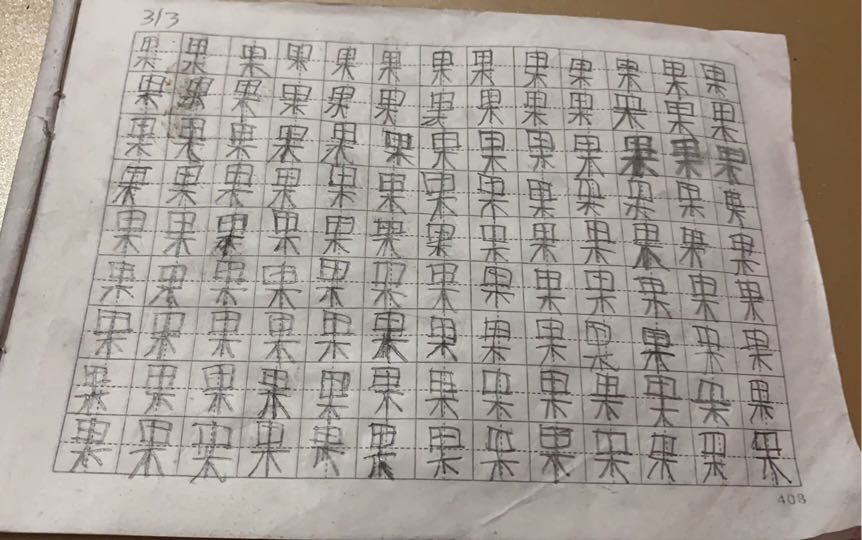 3/3
果果果果果果果果果果果果果
果果果果果果果果果果果果果
果果果果果果果果果果果果果
果果果果果果果果果果果果果
果果果果果果果果果果果果果
果果果果果果果果果果果果果
果果果果果果果果果果果果果
果果果果果果果果果果果果果
果果果果果果果果果果果果果
408